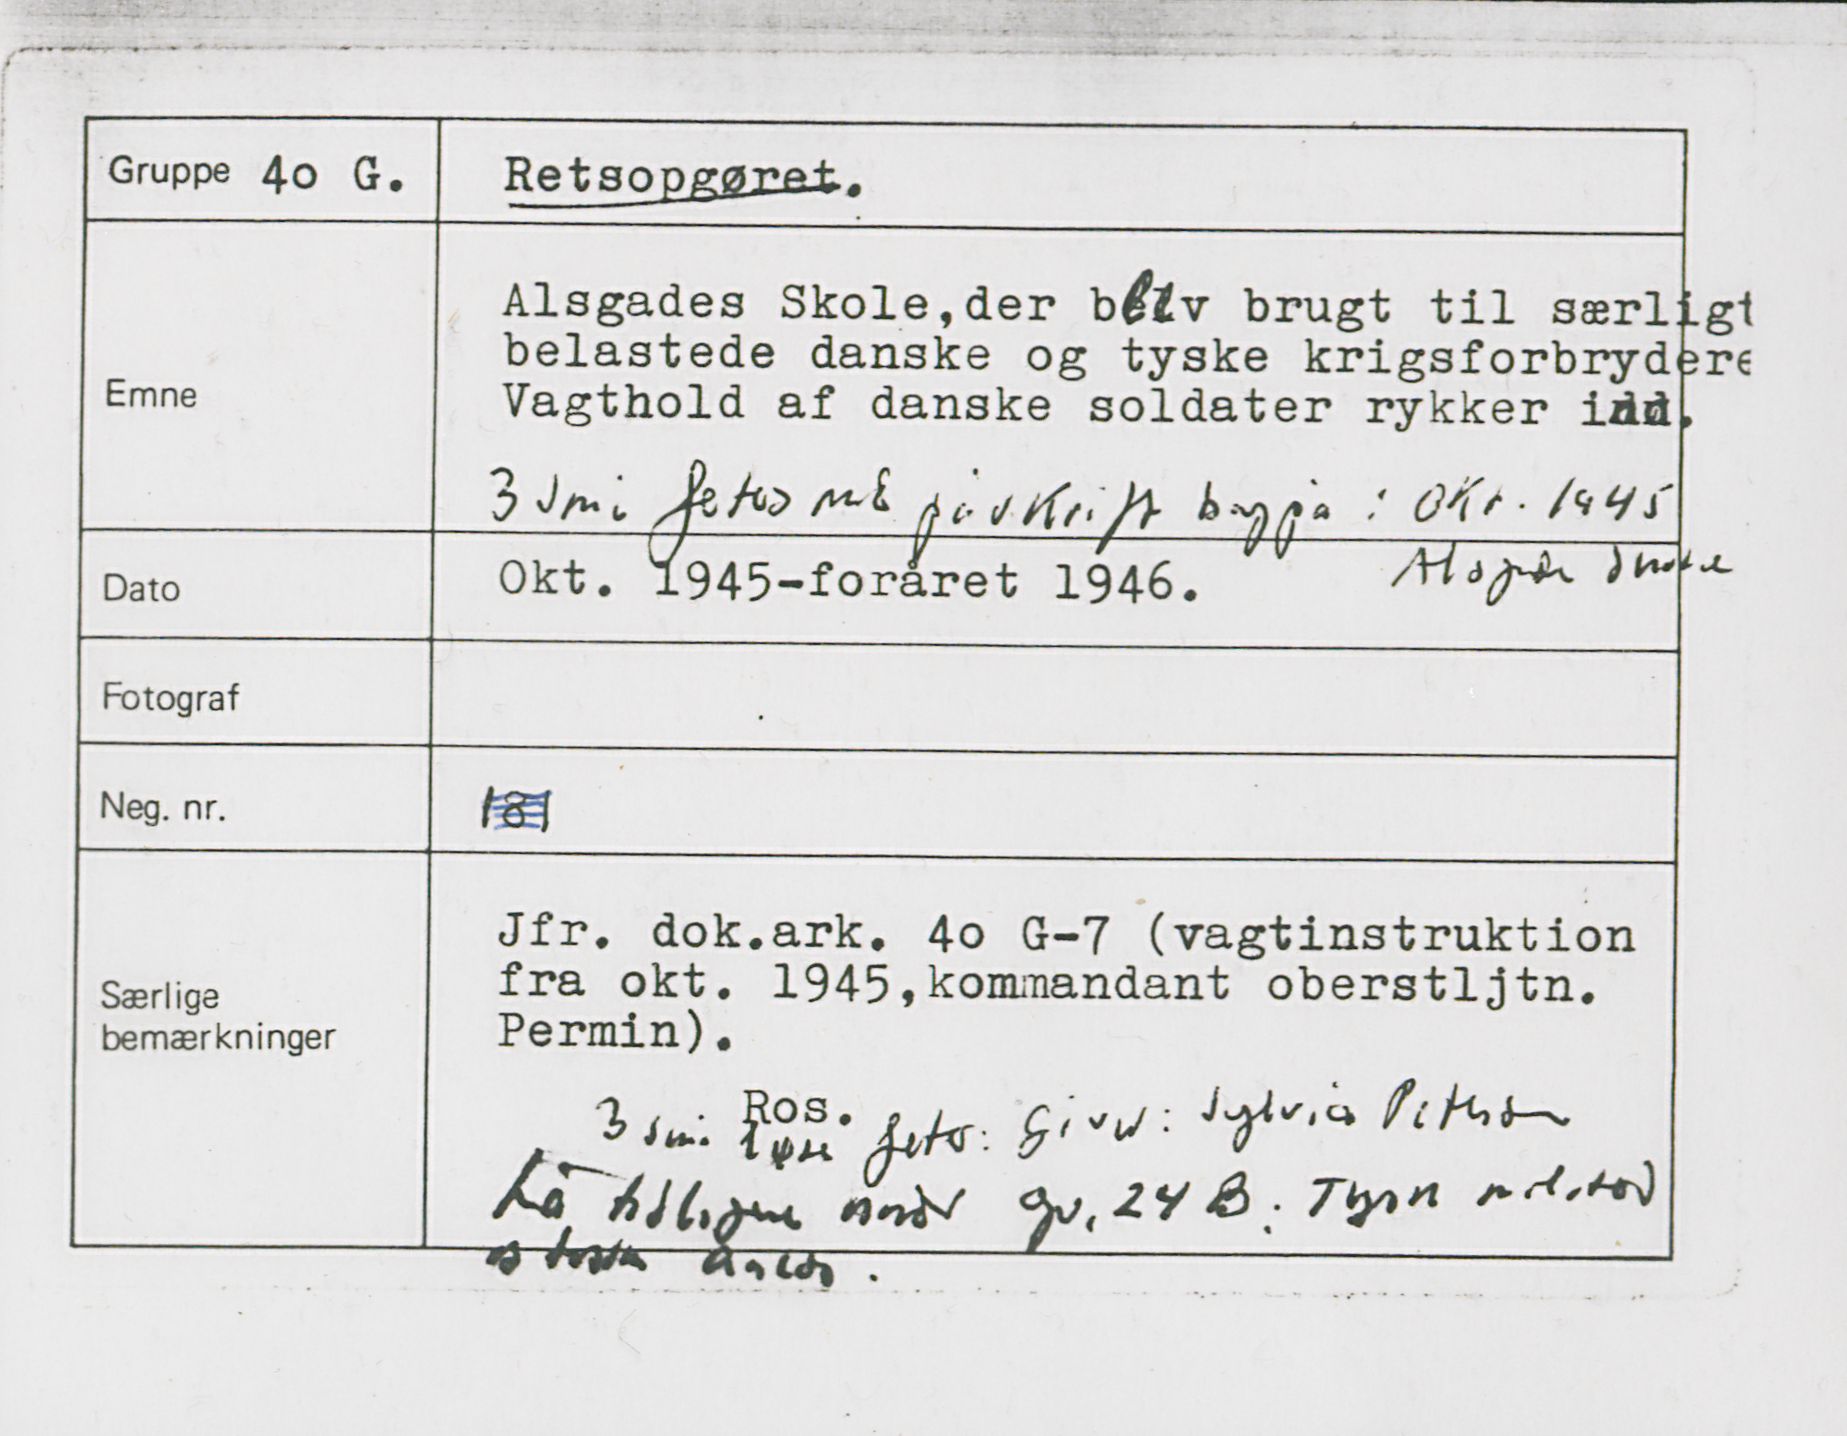 Gruppe 4o G. Retsopgøret.
Emne
Alsgades Skole,der blev brugt til særligt
belastede danske og tyske krigsforbrydere
Vagthold af danske soldater rykker ind.
3 små fotos med påskrift bagpå : Okt. 1945
Dato Okt. 1945-foråret 1946.
Fotograf
Neg. nr. 181
Særlige
bemærkninger
Jfr. dok.ark. 4o G-7 (vagtinstruktion
fra okt. 1945,kommandant oberstljtn.
Permin).
Ros.
3 små fotos: Giver: Sylvia Petersen
Lå tidligere under gr. 24 B: Tysk militær